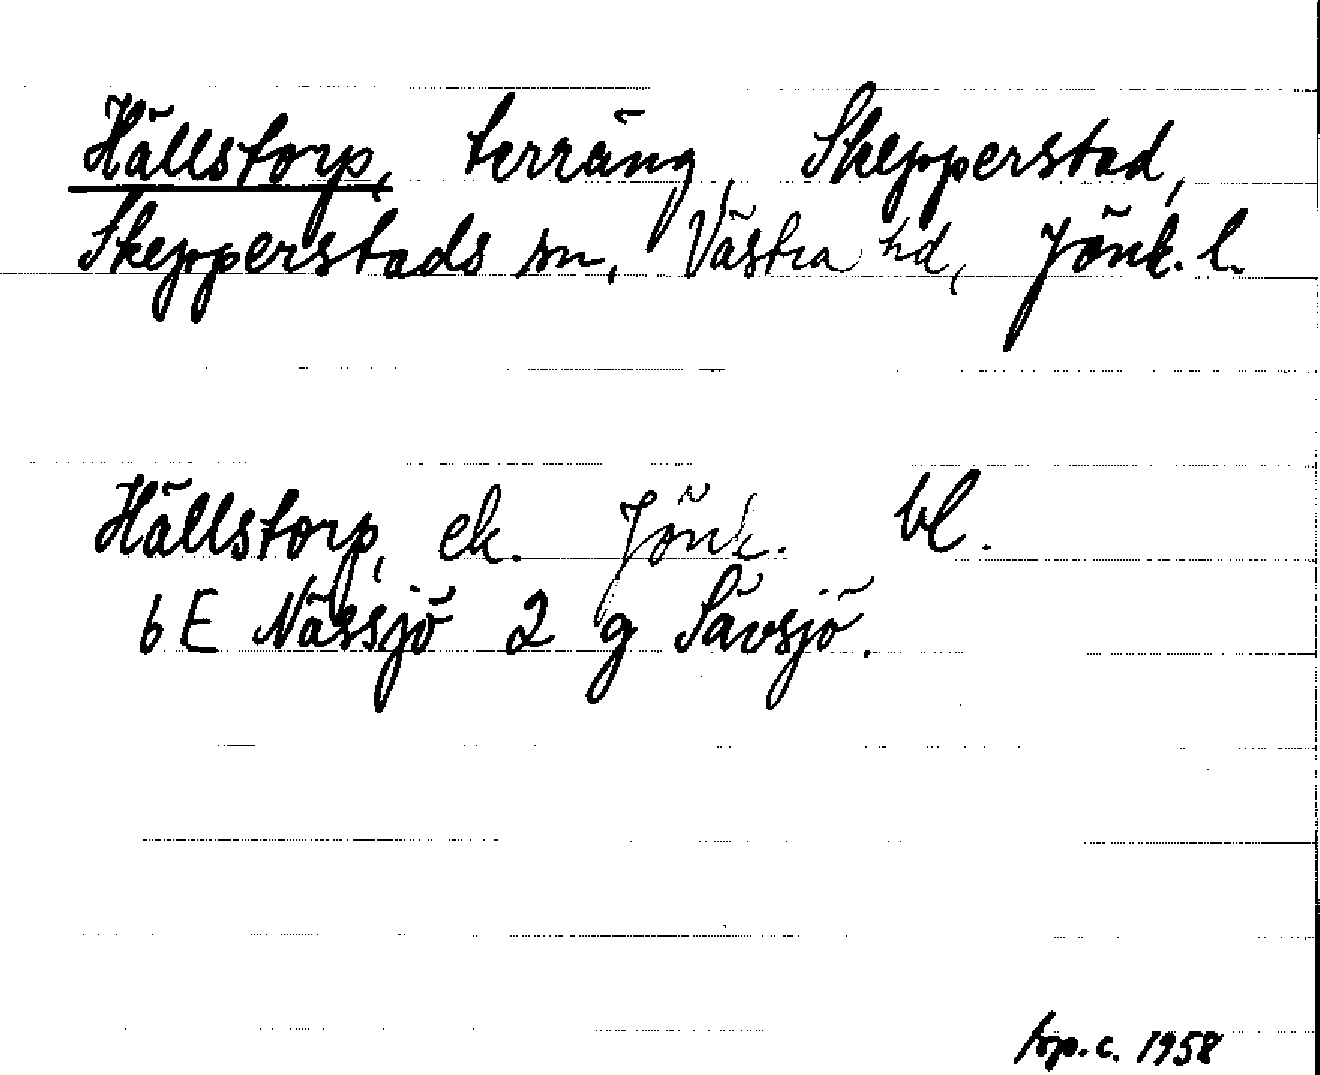 Hällstorp, terräng, Skepperstad,
Skepperstads sn, Västra hd, Jönk. l.
Hällstorp, ek. Jönk. bl.
6 E Nässjö 2 g Sävsjö.
top. c. 1958